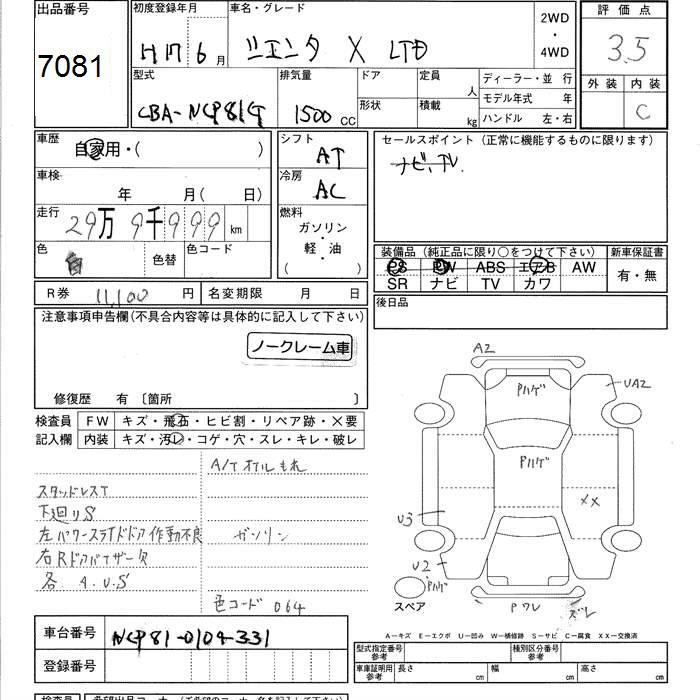 出品番号
7081
初度登録年月
H17 6月
車名・グレード
シエンタ X LTD
2WD
・
4WD
評価点
3.5
外装 内装
C
型式
CBA-NCP81G
排気量
1500 CC
ドア
形状
定員 人
積載 kg
ディーラー・並 行
モデル年式 年
ハンドル 左・右
車歴
自家用・( )
車検
年 月( 日)
走行
29万9千999 km
色
白
色替
色コード
シフト
AT
冷房
AC
燃料
ガソリン
・
軽・油
( )
セールスポイント(正常に機能するものに限ります)
ナビ、TV
装備品(純正品に限り○をつけて下さい)
PS PW ABS エアB AW
SR ナビ TV カワ
新車保証書
有・無
後日品
R券 11,100 円
名変期限 月 日
注意事項申告欄(不具合内容等は具体的に記入して下さい)
ノークレーム車
修復歴 有 〔箇所 〕
検査員
記入欄
FW キズ・飛石・ヒビ割・リペア跡・×要
内装 キズ・汚レ・コゲ・穴・スレ・キレ・破レ
A/Tオイルもれ
スタッドレスT
下廻りS
左パワースライドドア作動不良
ガソリン
右Rドアバイザー欠
各 A.U.S
色コード 064
A2
Pハゲ
UA2
Pハゲ
XX
U3
U2
Pハゲ
スペア
Pワレ
ズレ
A-キズ E-エクボ U-凹み W-補修跡 S-サビ C-腐食 XX-交換済
車台番号
NCP81-0104331
登録番号
型式指定番号
参考
種別区分番号
参考
車庫証明用
参考
長さ cm
幅 cm
高さ cm